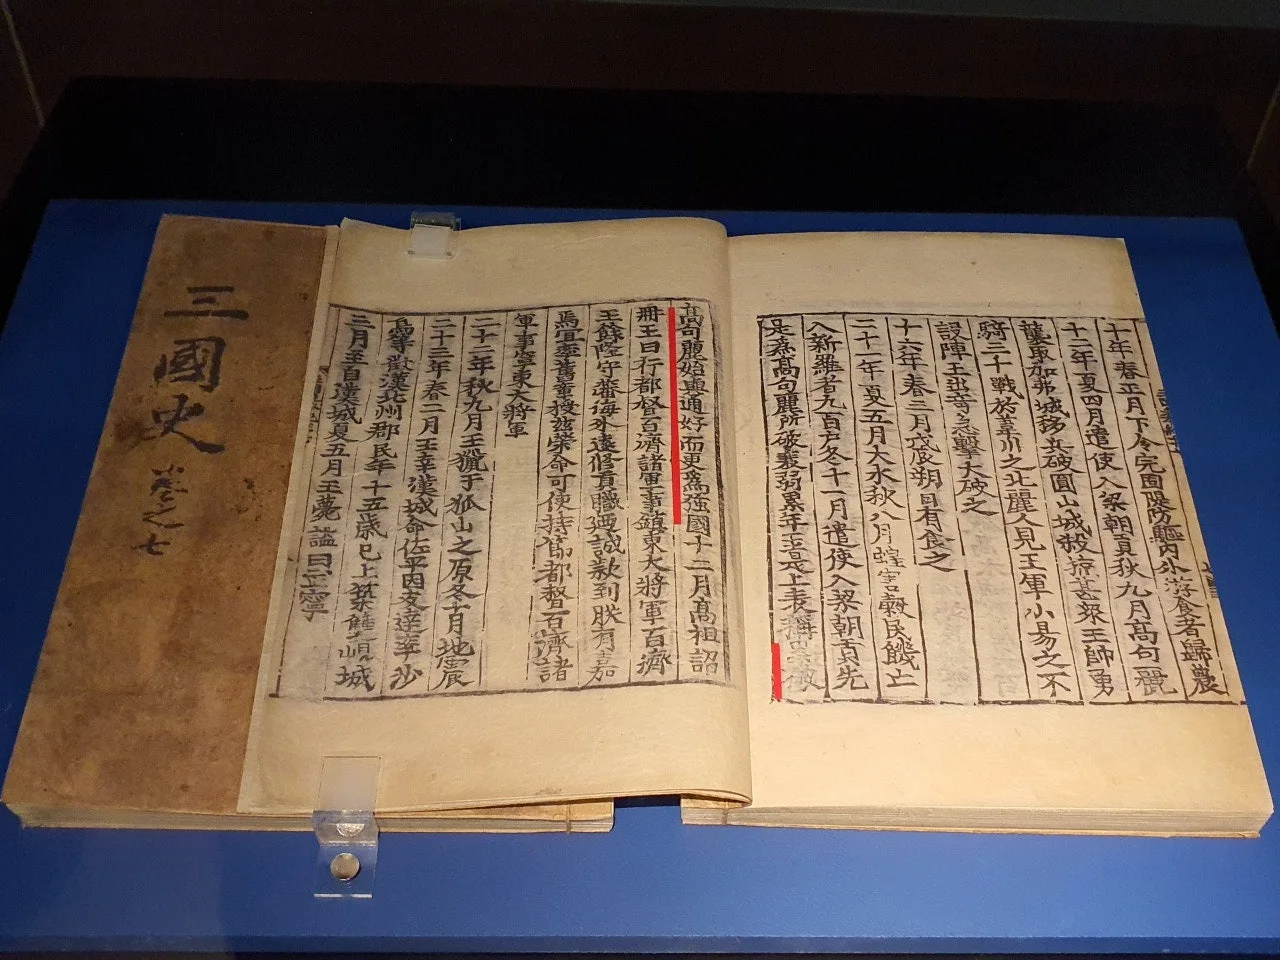 十年春正月下令完固隄防驅內外游食者歸農
十二年夏四月遣使入梁朝貢秋九月高句麗
襲取加弗城移兵破圓山城殺掠甚衆王帥勇
騎三千戰於葦川之北麗人見王軍小易之不
設陣王出竒急擊大破之
十六年春三月戊辰朔日有食之
二十一年夏五月大水秋八月蝗害穀民饑亡
入新羅者九百戶冬十一月遣使入梁朝貢先
是爲高句麗所破衰弱累年至是上表稱累破
高句麗始與通好而更爲強國十二月高祖詔
冊王曰行都督百濟諸軍事鎮東大將軍百濟
王餘隆守藩海外遠修貢職迺誠款到朕有嘉
焉宜率舊章授茲榮命可使持節都督百濟諸
軍事寧東大將軍
二十二年秋九月王獵于狐山之原冬十月地震
二十三年春二月王幸漢城命佐平因友達率沙
烏等徵漢北州郡民年十五歲已上築雙峴城
三月至自漢城夏五月王薨諡曰武寧
三國史
卷之七